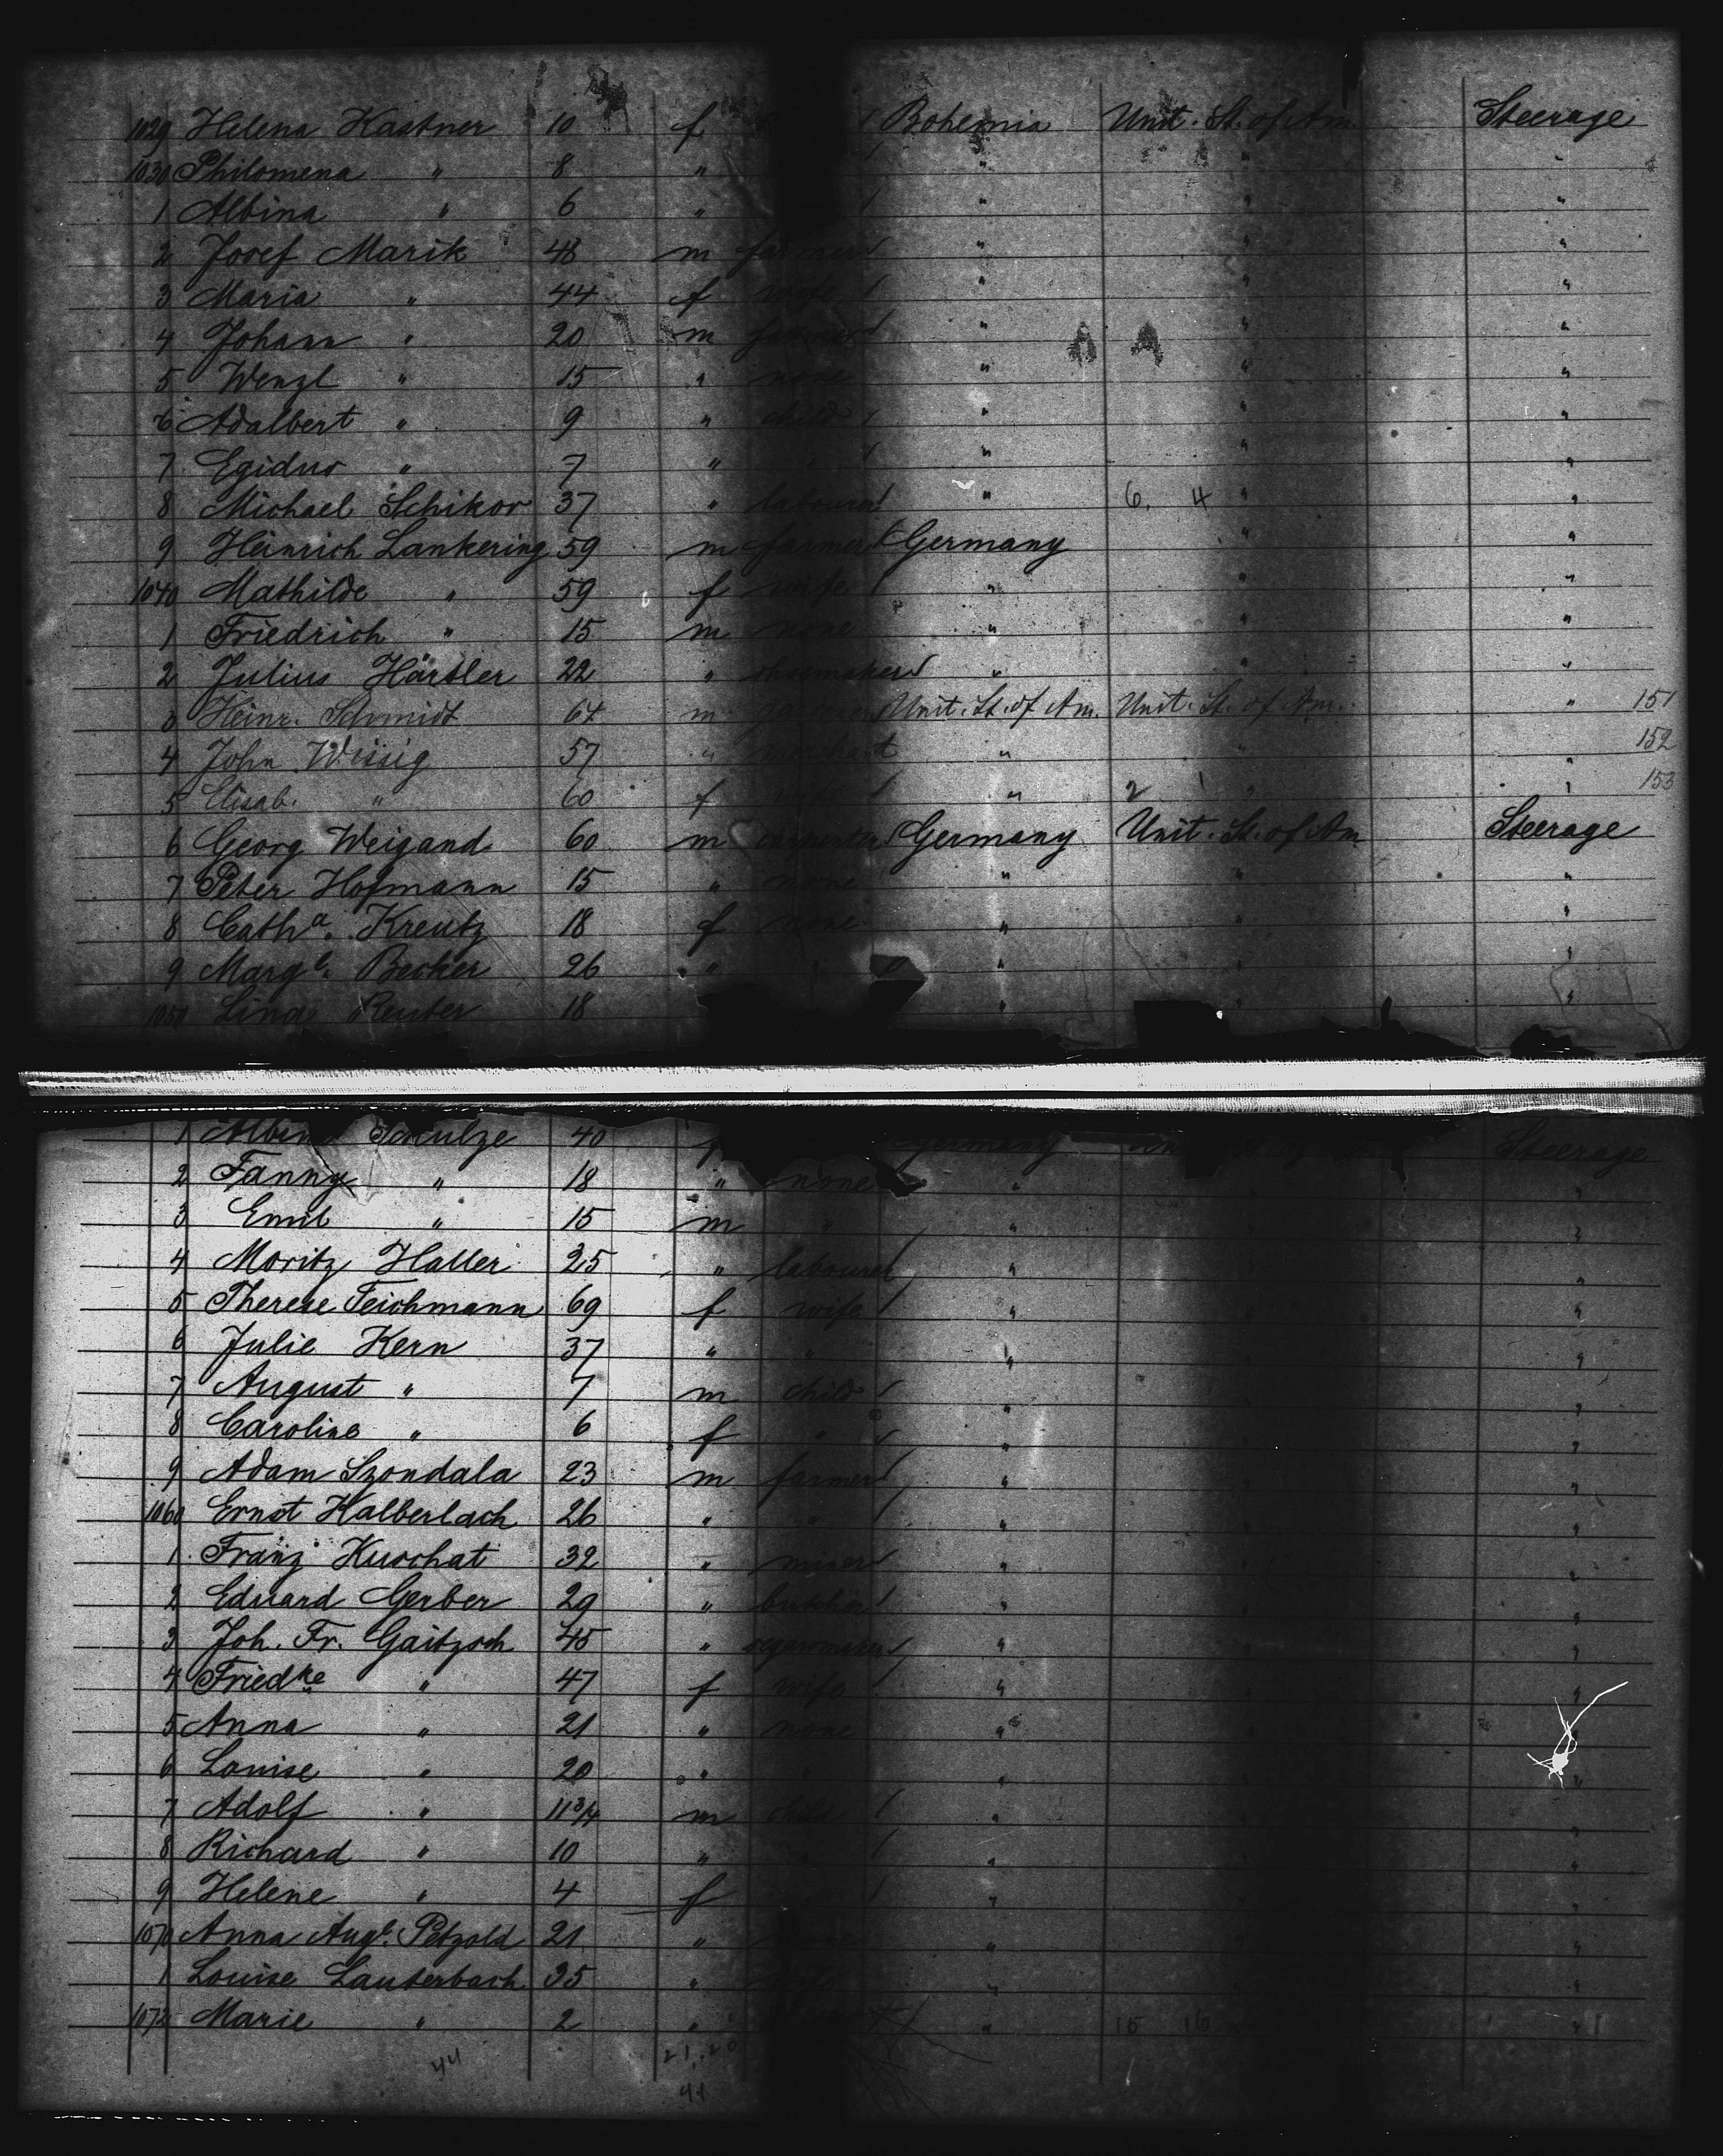 1029 Helena Kastner 10 f Bohemia Unit. St. of Am. Steerage
1030 Philomena " 8 " " " "
1 Albina " 6 " " " "
2 Josef Marik 48 m farmer " " "
3 Maria " 44 f wife " " "
4 Johann " 20 m farmer " " "
5 Wenzl " 15 " none " " "
6 Adalbert " 9 " child " " "
7 Egidius " 7 " " " " "
8 Michael Schikor 37 " labourer " 6. 4 " "
9 Heinrich Lankering 59 m farmer Germany " "
1040 Mathilde " 59 f wife " " "
1 Friedrich " 15 m none " " "
2 Julius Härtler 22 " shoemaker " " "
3 Heinr. Schmidt 64 m Unit. St. of Am. Unit. St. of Am. " 151
4 John Wissig 57 " " " " 152
5 Elisab. " 60 f " 2 1 " " 153
6 Georg Weigand 60 m carpenter Germany Unit. St. of Am Steerage
7 Peter Hofmann 15 " none " " "
8 Cath.a Kreutz 18 f none " " "
9 Marg.e Becker 26 " " " " "
1050 Lina Reuter 18 " " "
1 Albine Schulze 40 f Germany Steerage
2 Fanny " 18 " none " " "
3 Emil " 15 m " " " "
4 Moritz Haller 25 " labourer " " "
5 Therese Teichmann 69 f wife " " "
6 Julie Kern 37 " " " " "
7 August " 7 m child " " "
8 Caroline " 6 f " " " "
9 Adam Szondala 23 m farmer " " "
1060 Ernst Halberlach 26 " " " " "
1 Franz Kuschat 32 " miner " " "
2 Eduard Gerber 29 " butcher " " "
3 Joh. Fr. Gaitzsch 45 " segarmaker " " "
4 Friedke " 47 f wife " " "
5 Anna " 21 " none " " "
6 Louise " 20 " " " "
7 Adolf " 11 3/4 m child " " "
8 Richard " 10 " " " "
9 Helene " 4 f " " "
1070 Anna Aug.e Petzold 21 " " " "
1 Louise Lauterbach 35 " " " "
1072 Marie " 2 " " 15 16 " "
44 21. 20
41